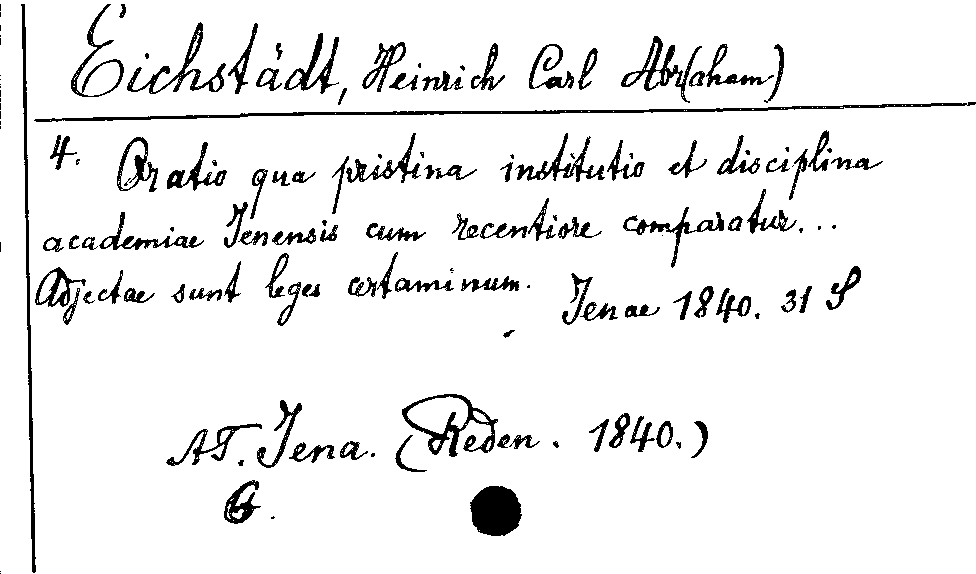 Eichstädt, Heinrich Carl Abr(aham)
4. Oratio qua pristina institutio et disciplina
academiae Jenensis cum recentiore comparatur...
Adjectae sunt leges certaminum.
Jenae 1840. 31 S
AT. Jena. (Reden. 1840.)
G.